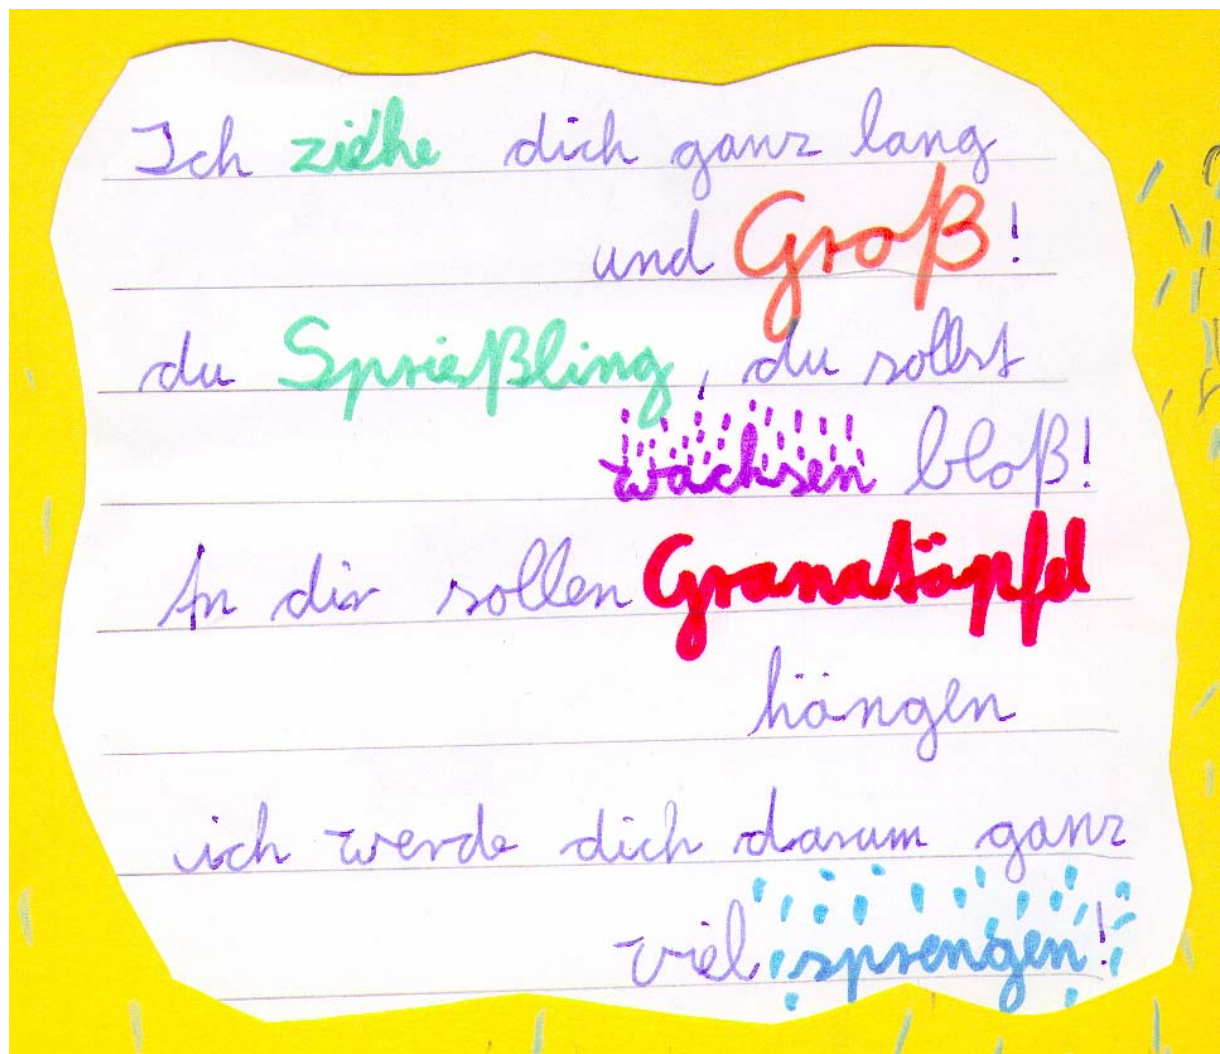 Ich ziehe dich ganz lang
und Groß!
du Sprießling, du sollst
wachsen bloß!
An dir sollen Granatäpfel
hängen
ich werde dich darum ganz
viel sprengen!